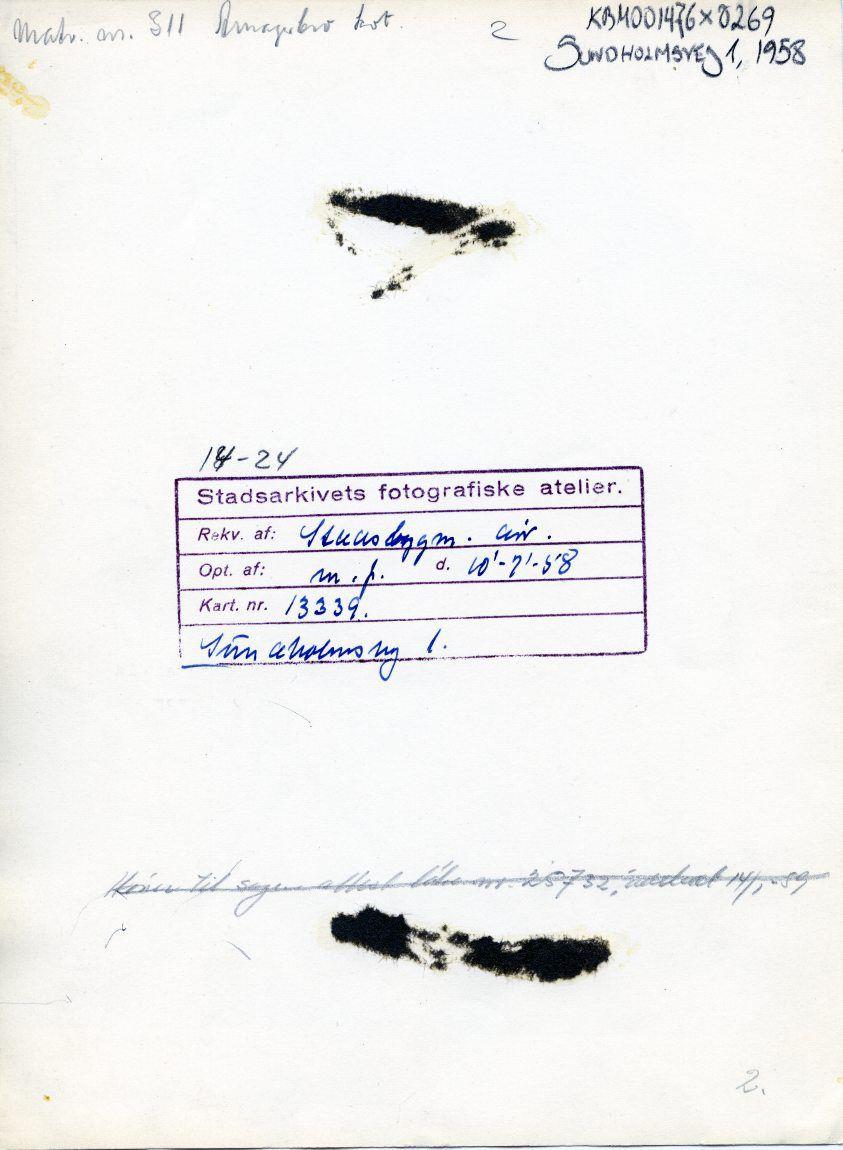 Matr. nr. 311 Amagerbro kvt.
2
KBM001476x0269
SUNDHOLMSVEJ 1, 1958
14-24
Stadsarkivets fotografiske atelier.
Rekv. af: Stadsbygm. dir.
Opt. af: m.p. d. 10'-7'-58
Kart. nr. 13339.
Sundholmsvej 1.
til sagen nr. 25732, 14/1-59
2.